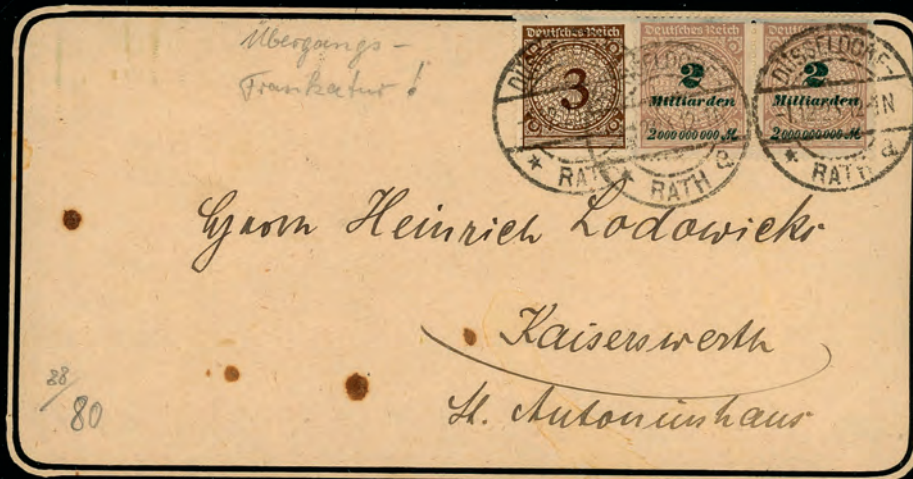 Übergangs-
Frankatur!
Deutsches Reich
3
Deutsches Reich
2
Milliarden
2000 000 000 M
Deutsches Reich
2
Milliarden
2000 000 000 M
DÜSSELDORF-
RATH a
DÜSSELDORF-
RATH a
Herrn Heinrich Lodowicks
Kaiserswerth
St. Antoniushaus
28/80